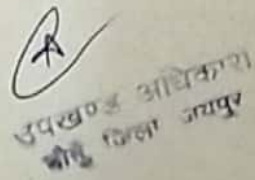 A
उपखण्ड अधिकारी
चौमूँ जिला जयपुर